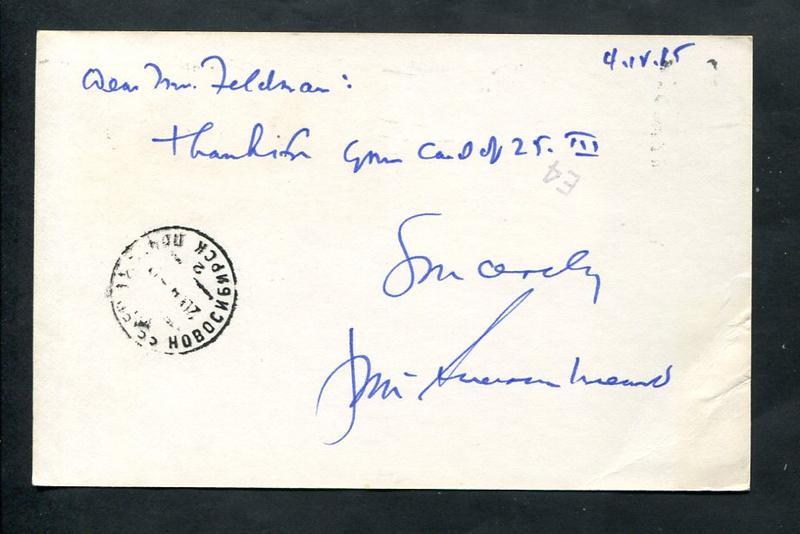 4.IV.65
Dear Mr. Feldman:
Thanks for your card of 25. III
E4
Sincerely
НОВОСИБИРСК ПОЧ
2